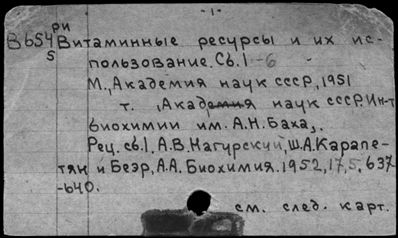 -1-
ри
В654 Витаминные ресурсы и их ис-
5 пользование. Сб.1-6
М., Академия наук СССР, 1951
т. (Академия наук СССР. Ин-т
биохимии им. А.Н. Баха).
Рец. сб.1. А.В. Нагурский, Ш.А. Карапе-
тян и Беэр, А.А. Биохимия. 1952, 17, 5, 637
-640.
см. след. карт.